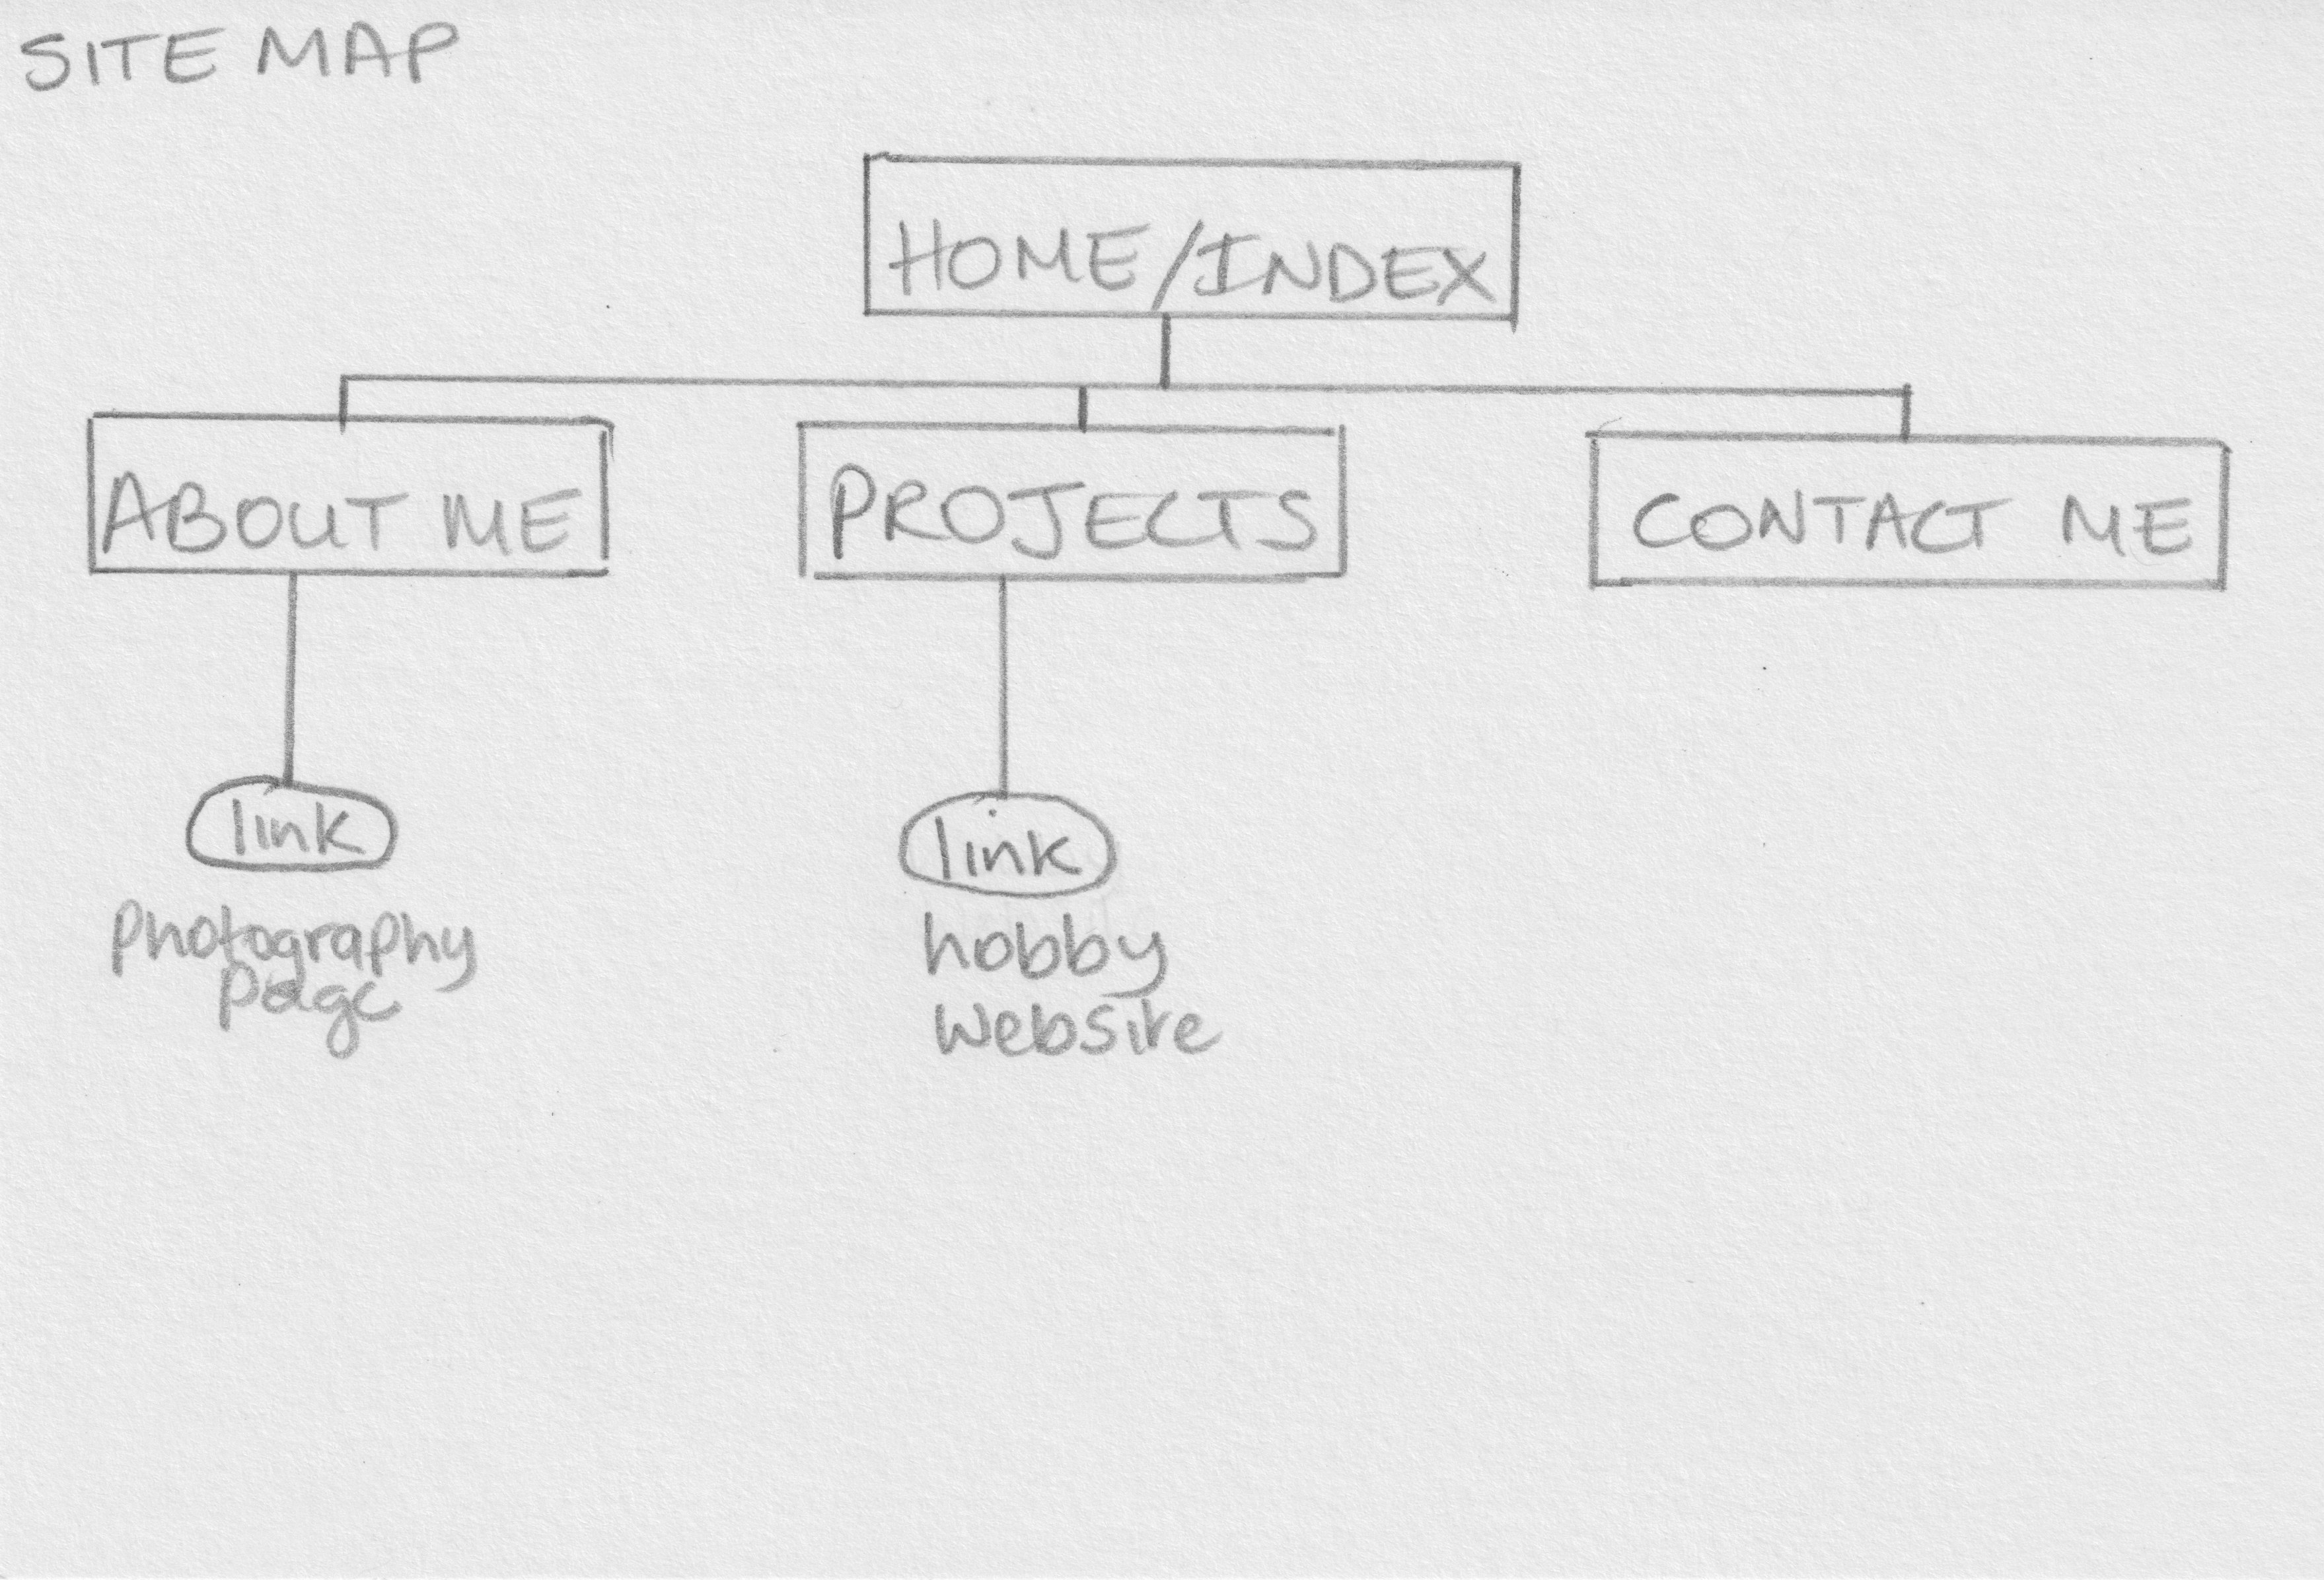 SITE MAP
HOME/INDEX
ABOUT ME
PROJECTS
CONTACT ME
link
link
Photography
Page
hobby
Website